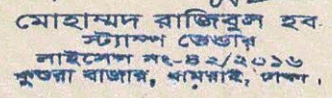 মোহাম্মদ রাজিবুল হক
স্ট্যাম্প ভেন্ডার
লাইসেন্স নং-৪২/২০১৬
বাজার, ধামরাই, ঢাকা।